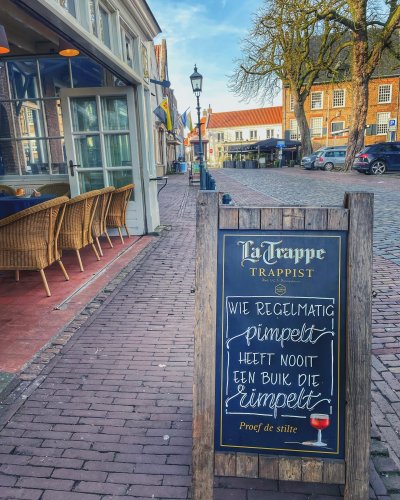 La Trappe
TRAPPIST
WIE REGELMATIG
pimpelt
HEEFT NOOIT
EEN BUIK DIE
rimpelt
Proef de stilte